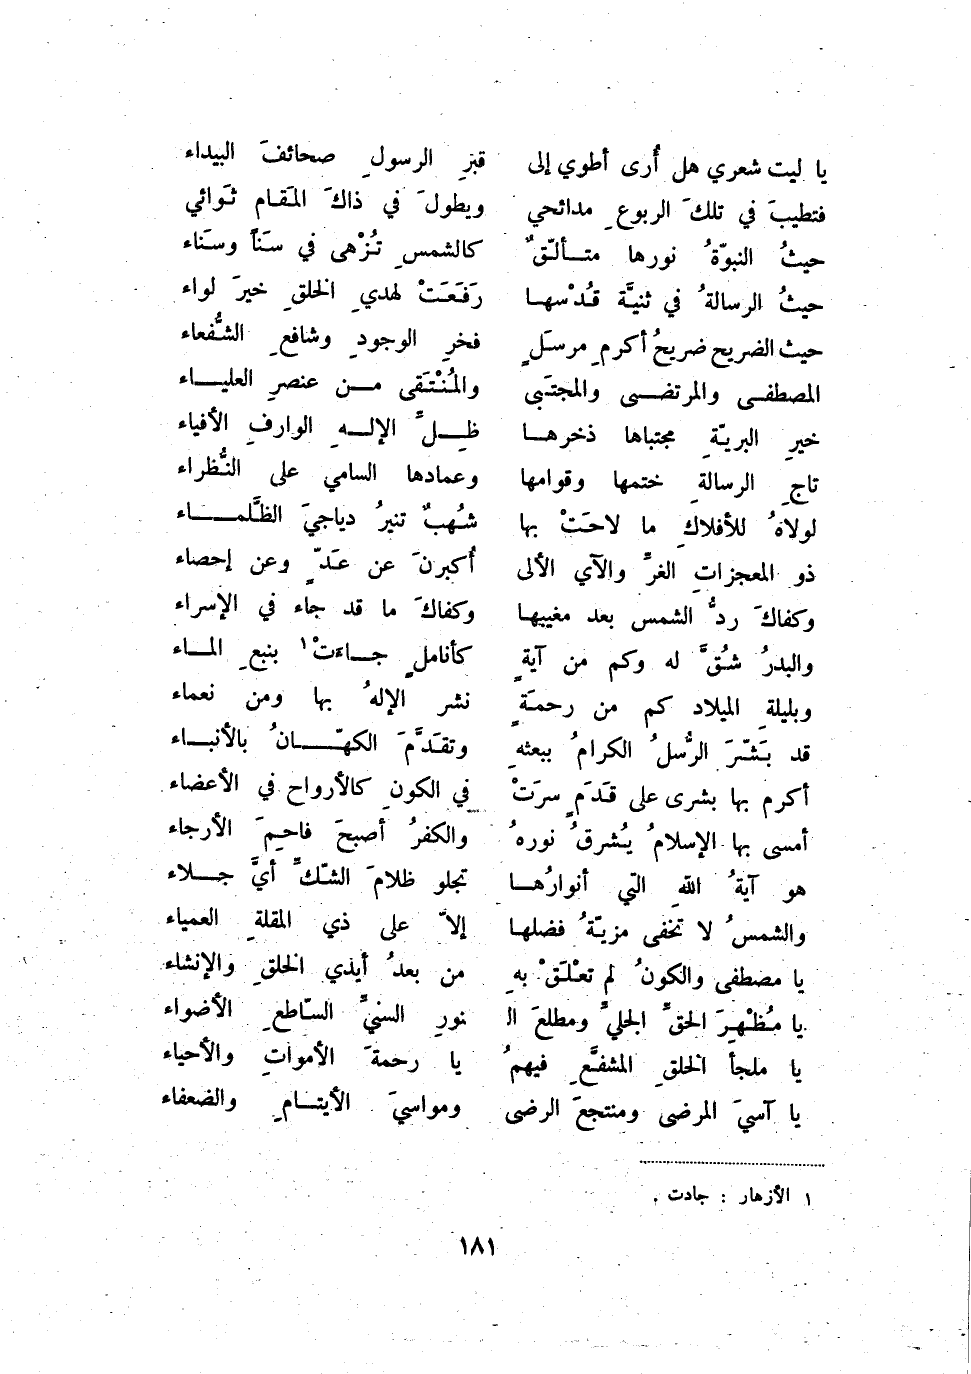 يا ليت شعري هل أُرى أطوي إلى قبرِ الرسولِ صحائفَ البيداء
فتطيبَ في تلكَ الربوعِ مدائحي ويطولَ في ذاكَ المَقام ثَوائي
حيثُ النبوّةُ نورها متألّقٌ كالشمسِ تُزْهى في سَناً وسَناء
حيثُ الرسالةُ في ثنيَّة قُدْسها رَفَعَتْ لهديِ الخلقِ خيرَ لواء
حيث الضريح ضريحُ أكرمِ مرسَلٍ فخرِ الوجودِ وشافعِ الشُّفعاء
المصطفى والمرتضى والمجتَبى والمُنْتَقى من عنصرِ العلياء
خيرِ البريّةِ مجتباها ذخرها ظِلِّ الإلهِ الوارفِ الأفياء
تاجِ الرسالةِ ختمها وقوامها وعمادها السامي على النُّظراء
لولاهُ للأفلاكِ ما لاحَتْ بها شُهبٌ تنيرُ دياجيَ الظَّلماء
ذو المعجزاتِ الغرِّ والآي الألى أُكبرنَ عن عَدٍّ وعن إحصاء
وكفاكَ ردُّ الشمس بعد مغيبها وكفاكَ ما قد جاء في الإسراء
والبدرُ شُقَّ له وكم من آيةٍ كأناملٍ جاءتْ١ بنبعِ الماء
وبليلةِ الميلاد كم من رحمةٍ نشر الإلهُ بها ومن نعماء
قد بَشّرَ الرُّسلُ الكرامُ ببعثهِ وتقدَّمَ الكهّانُ بالأنباء
أكرم بها بشرى على قَدَمٍ سرَتْ في الكونِ كالأرواح في الأعضاء
أمسى بها الإسلامُ يُشرقُ نورهُ والكفرُ أصبحَ فاحِمَ الأرجاء
هو آيةُ اللهِ التي أنوارُها تجلو ظلامَ الشكِّ أيَّ جلاء
والشمسُ لا تخفى مزيّةُ فضلها إلاّ على ذي المقلةِ العمياء
يا مصطفى والكونُ لم تعْلَقْ بهِ من بعدُ أيدي الخلقِ والإنشاء
يا مُظْهِرَ الحقِّ الجليِّ ومطلعَ الـ نورِ السنيِّ السّاطعِ الأضواء
يا ملجأ الخلقِ المشفَّعِ فيهمُ يا رحمةَ الأمواتِ والأحياء
يا آسيَ المرضى ومنتجعَ الرضى ومواسيَ الأيتامِ والضعفاء
١ الأزهار : جادت .
١٨١